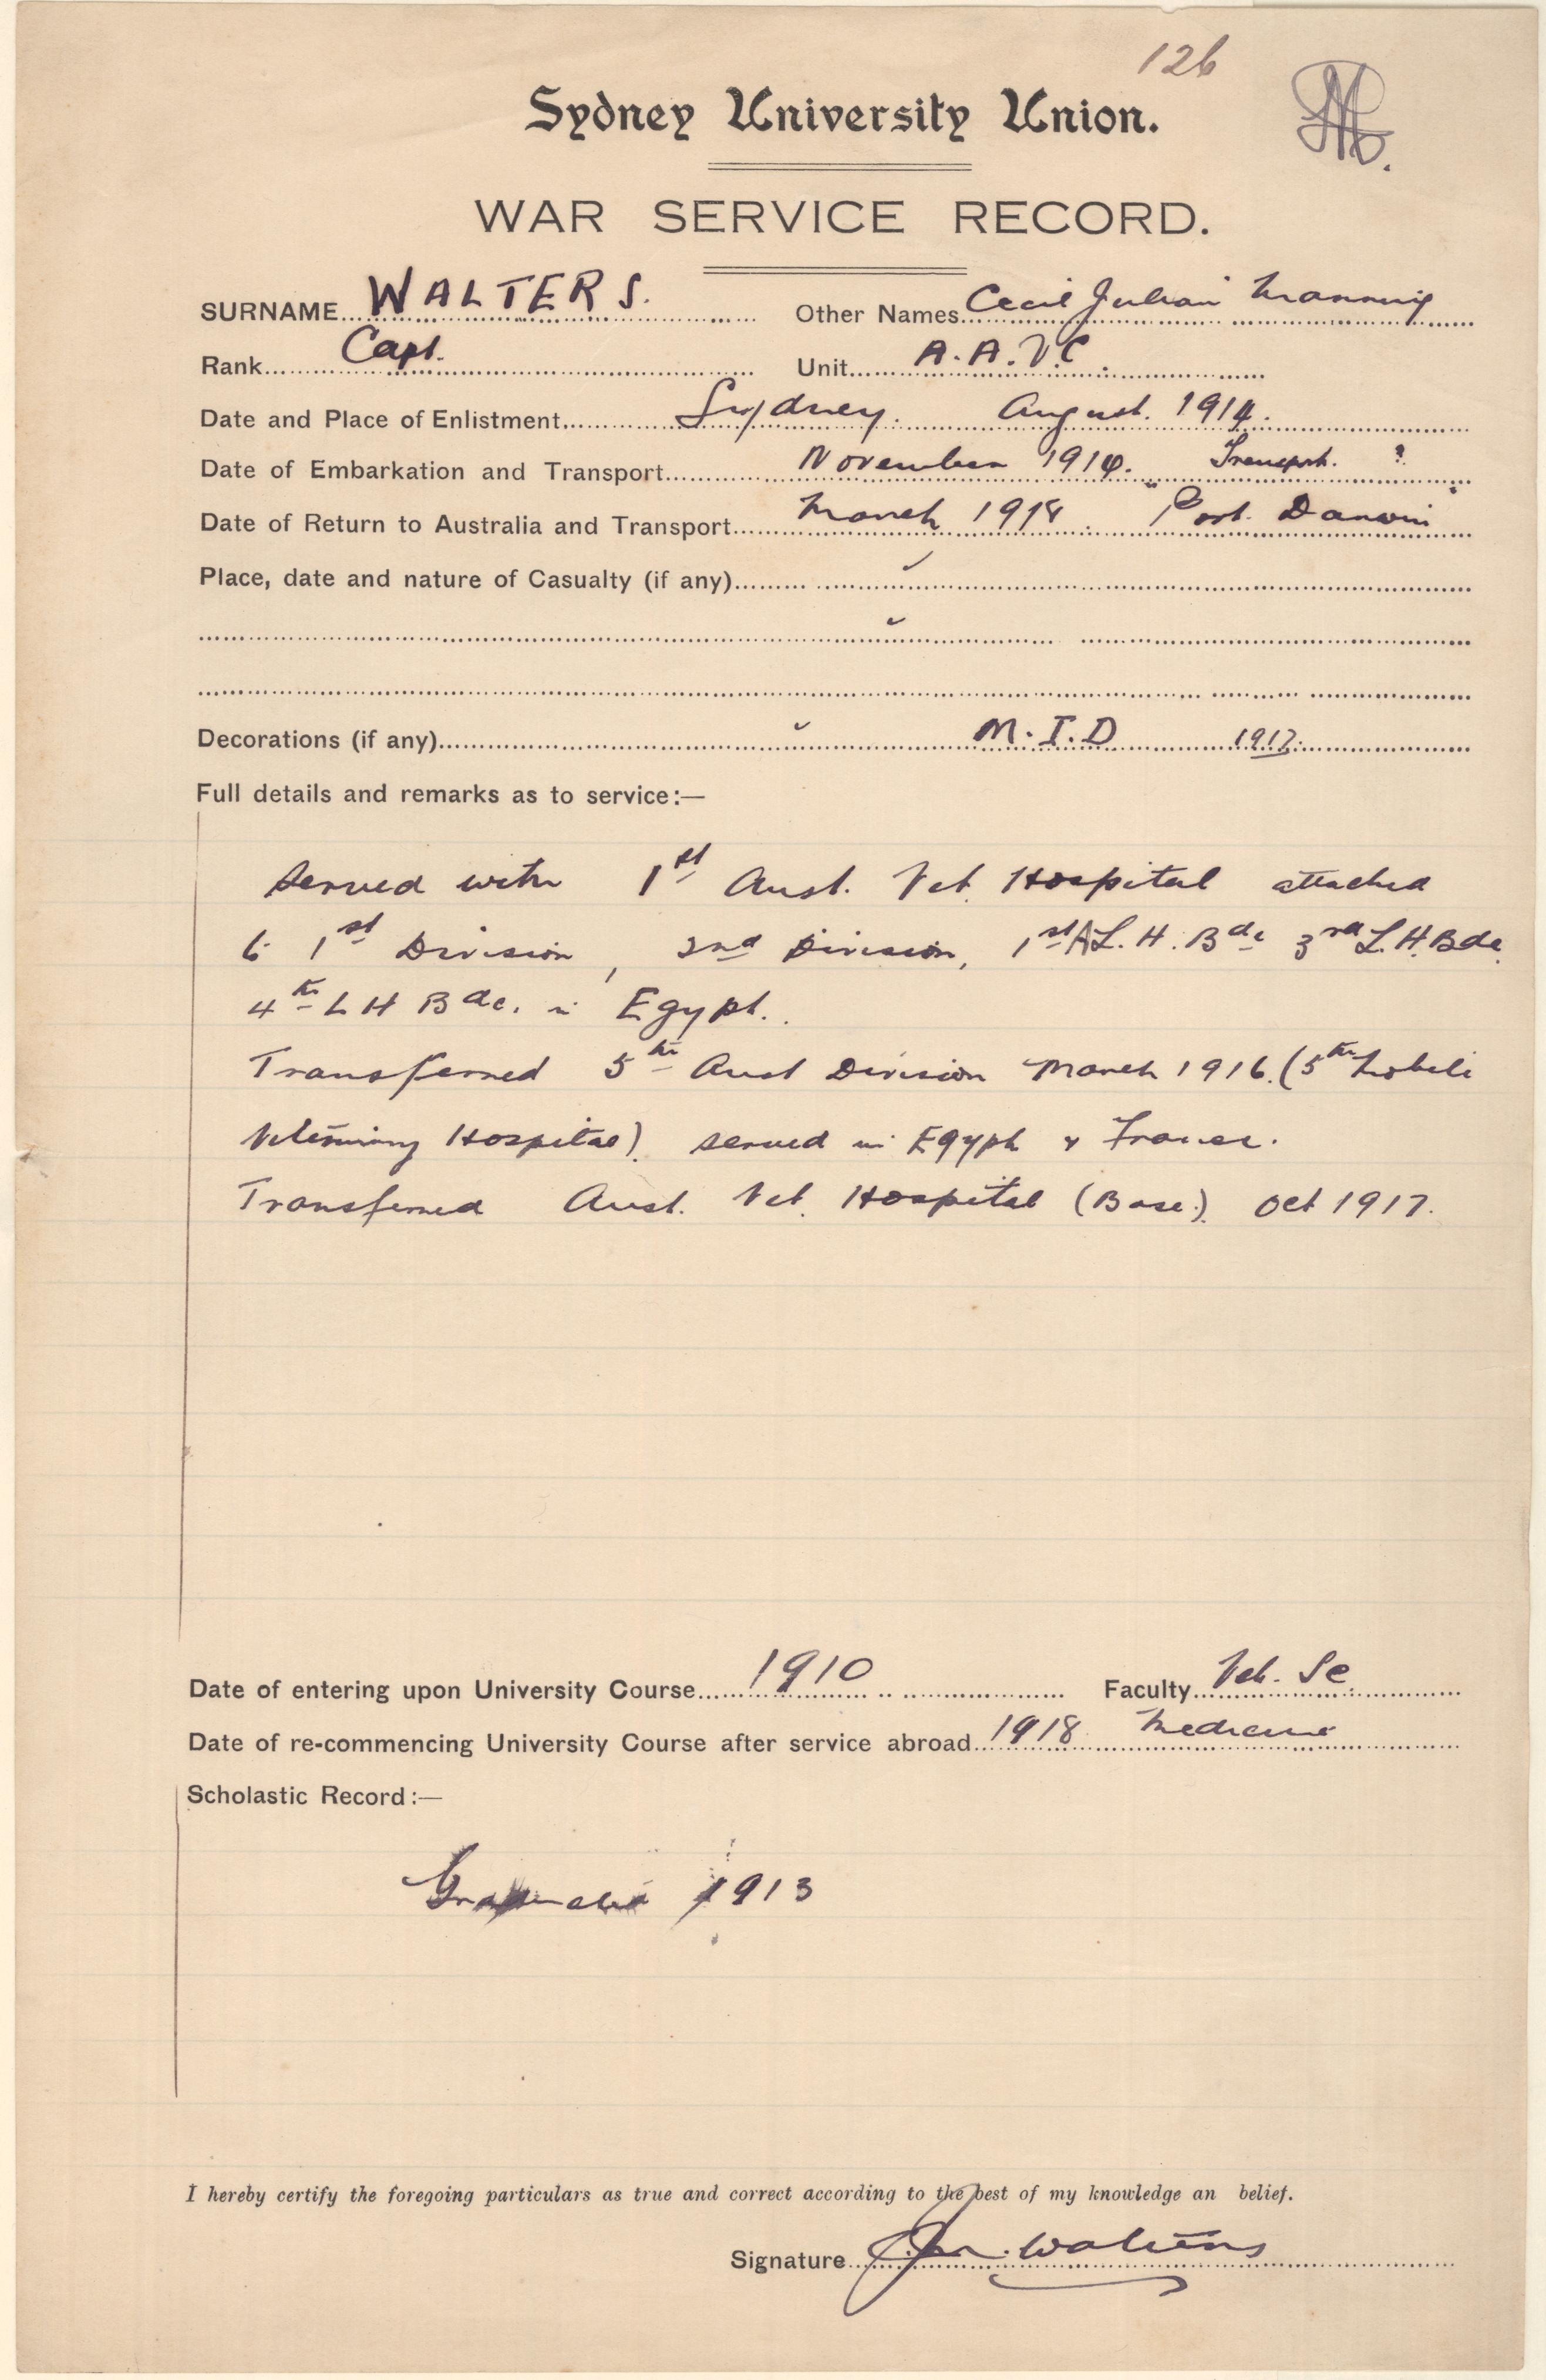 126
Sydney University Union.
WAR SERVICE RECORD.
SURNAME WALTERS. Other Names Cecil Julian Manning
Rank Capt. Unit A.A.V.C.
Date and Place of Enlistment Sydney. August. 1914.
Date of Embarkation and Transport November 1914. Transport. ?
Date of Return to Australia and Transport March 1918. "Port Darwin"
Place, date and nature of Casualty (if any)
Decorations (if any) M.I.D 1917.
Full details and remarks as to service:—
Served with 1st Aust. Vet. Hospital attached
to 1st Division, 2nd Division, 1st A L. H. Bde 3rd L. H. Bde.
4th L H Bde. in Egypt.
Transferred 5th Aust Division March 1916. (5th Mobile
Veterinary Hospital). served in Egypt & France.
Transferred Aust. Vet. Hospital (Base). Oct 1917.
Date of entering upon University Course 1910 Faculty Vet. Sc.
Date of re-commencing University Course after service abroad 1918 Medicine
Scholastic Record:—
Graduated 1913
I hereby certify the foregoing particulars as true and correct according to the best of my knowledge an belief.
Signature Walters